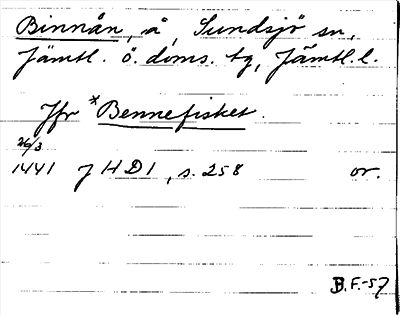 Binnån, å, Sundsjö sn,
Jämtl. ö. doms. tg, Jämtl. l.
Jfr *Bennefisket.
26/3
1441 JHD 1, s. 258 or.
B.F.-57